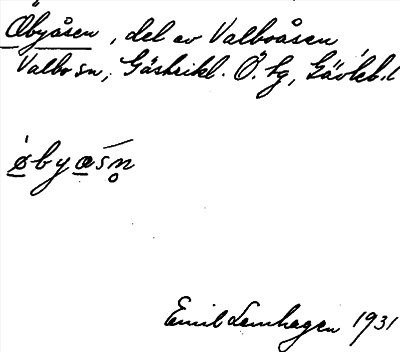 Öbyåsen, del av Valboåsen
Valbo sn, Gästrikl. Ö. tg, Gävleb.l
øbyɑsn̥
Emil Lemhagen 1931